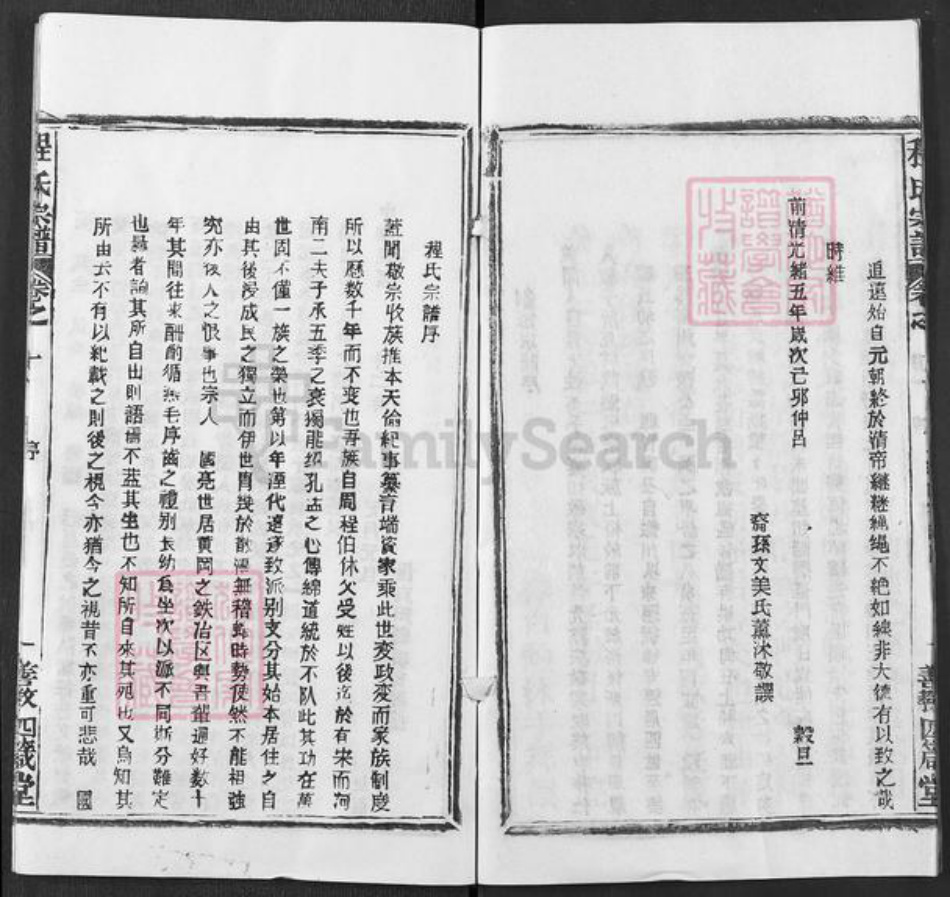 道遠始自元朝終於清帝継継繩繩不絶如線非大德有以致之哉
時維
前清光緒五年歲次己卯仲呂
穀旦
裔孫文美氏薰沐敬譔
程氏宗譜 卷之
善教 四箴堂
程氏宗譜序
蓋聞敬宗收族推本天倫紀事纂言端資家乘此世変政変而家族制度
所以歷数千年而不变也吾族自周程伯休父受姓以後迄於有宋而河
南二夫子承五季之衰獨能紹孔孟之心傳綿道統於不队此其功在萬
世固不僅一族之榮也第以年湮代遠逐致派别支分其始本居住之自
由其後浸成民之獨立而伊世胄幾於散漫無稽勢時勢使然不能祖強
究亦後人之恨事也宗人 國亮世居黄岡之鉄冶区與吾輩過好数十
年其間往来酬酌循然毛序齒之禮别長幼為坐次以派不同斯分難定
也識者論其所自出則語焉不盖其生也不知所自来其死也又烏知其
所由去不有以紀載之則後之視今亦猶今之視昔不亦重可悲哉 國
程氏宗譜 卷之一 序
善教 四箴堂
FamilySearch